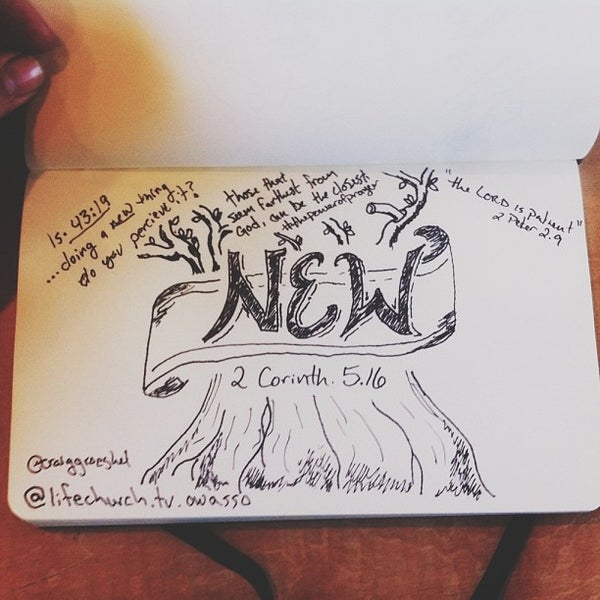 Is. 43:19
...doing a new thing,
do you percieve it?
those that
seem farthest from
God, can be the closest.
#thepowerofprayer
"the LORD is patient"
2 Peter 2.9
NEW
2 Corinth. 5.16
@craiggroeshel
@lifechurch.tv.owasso